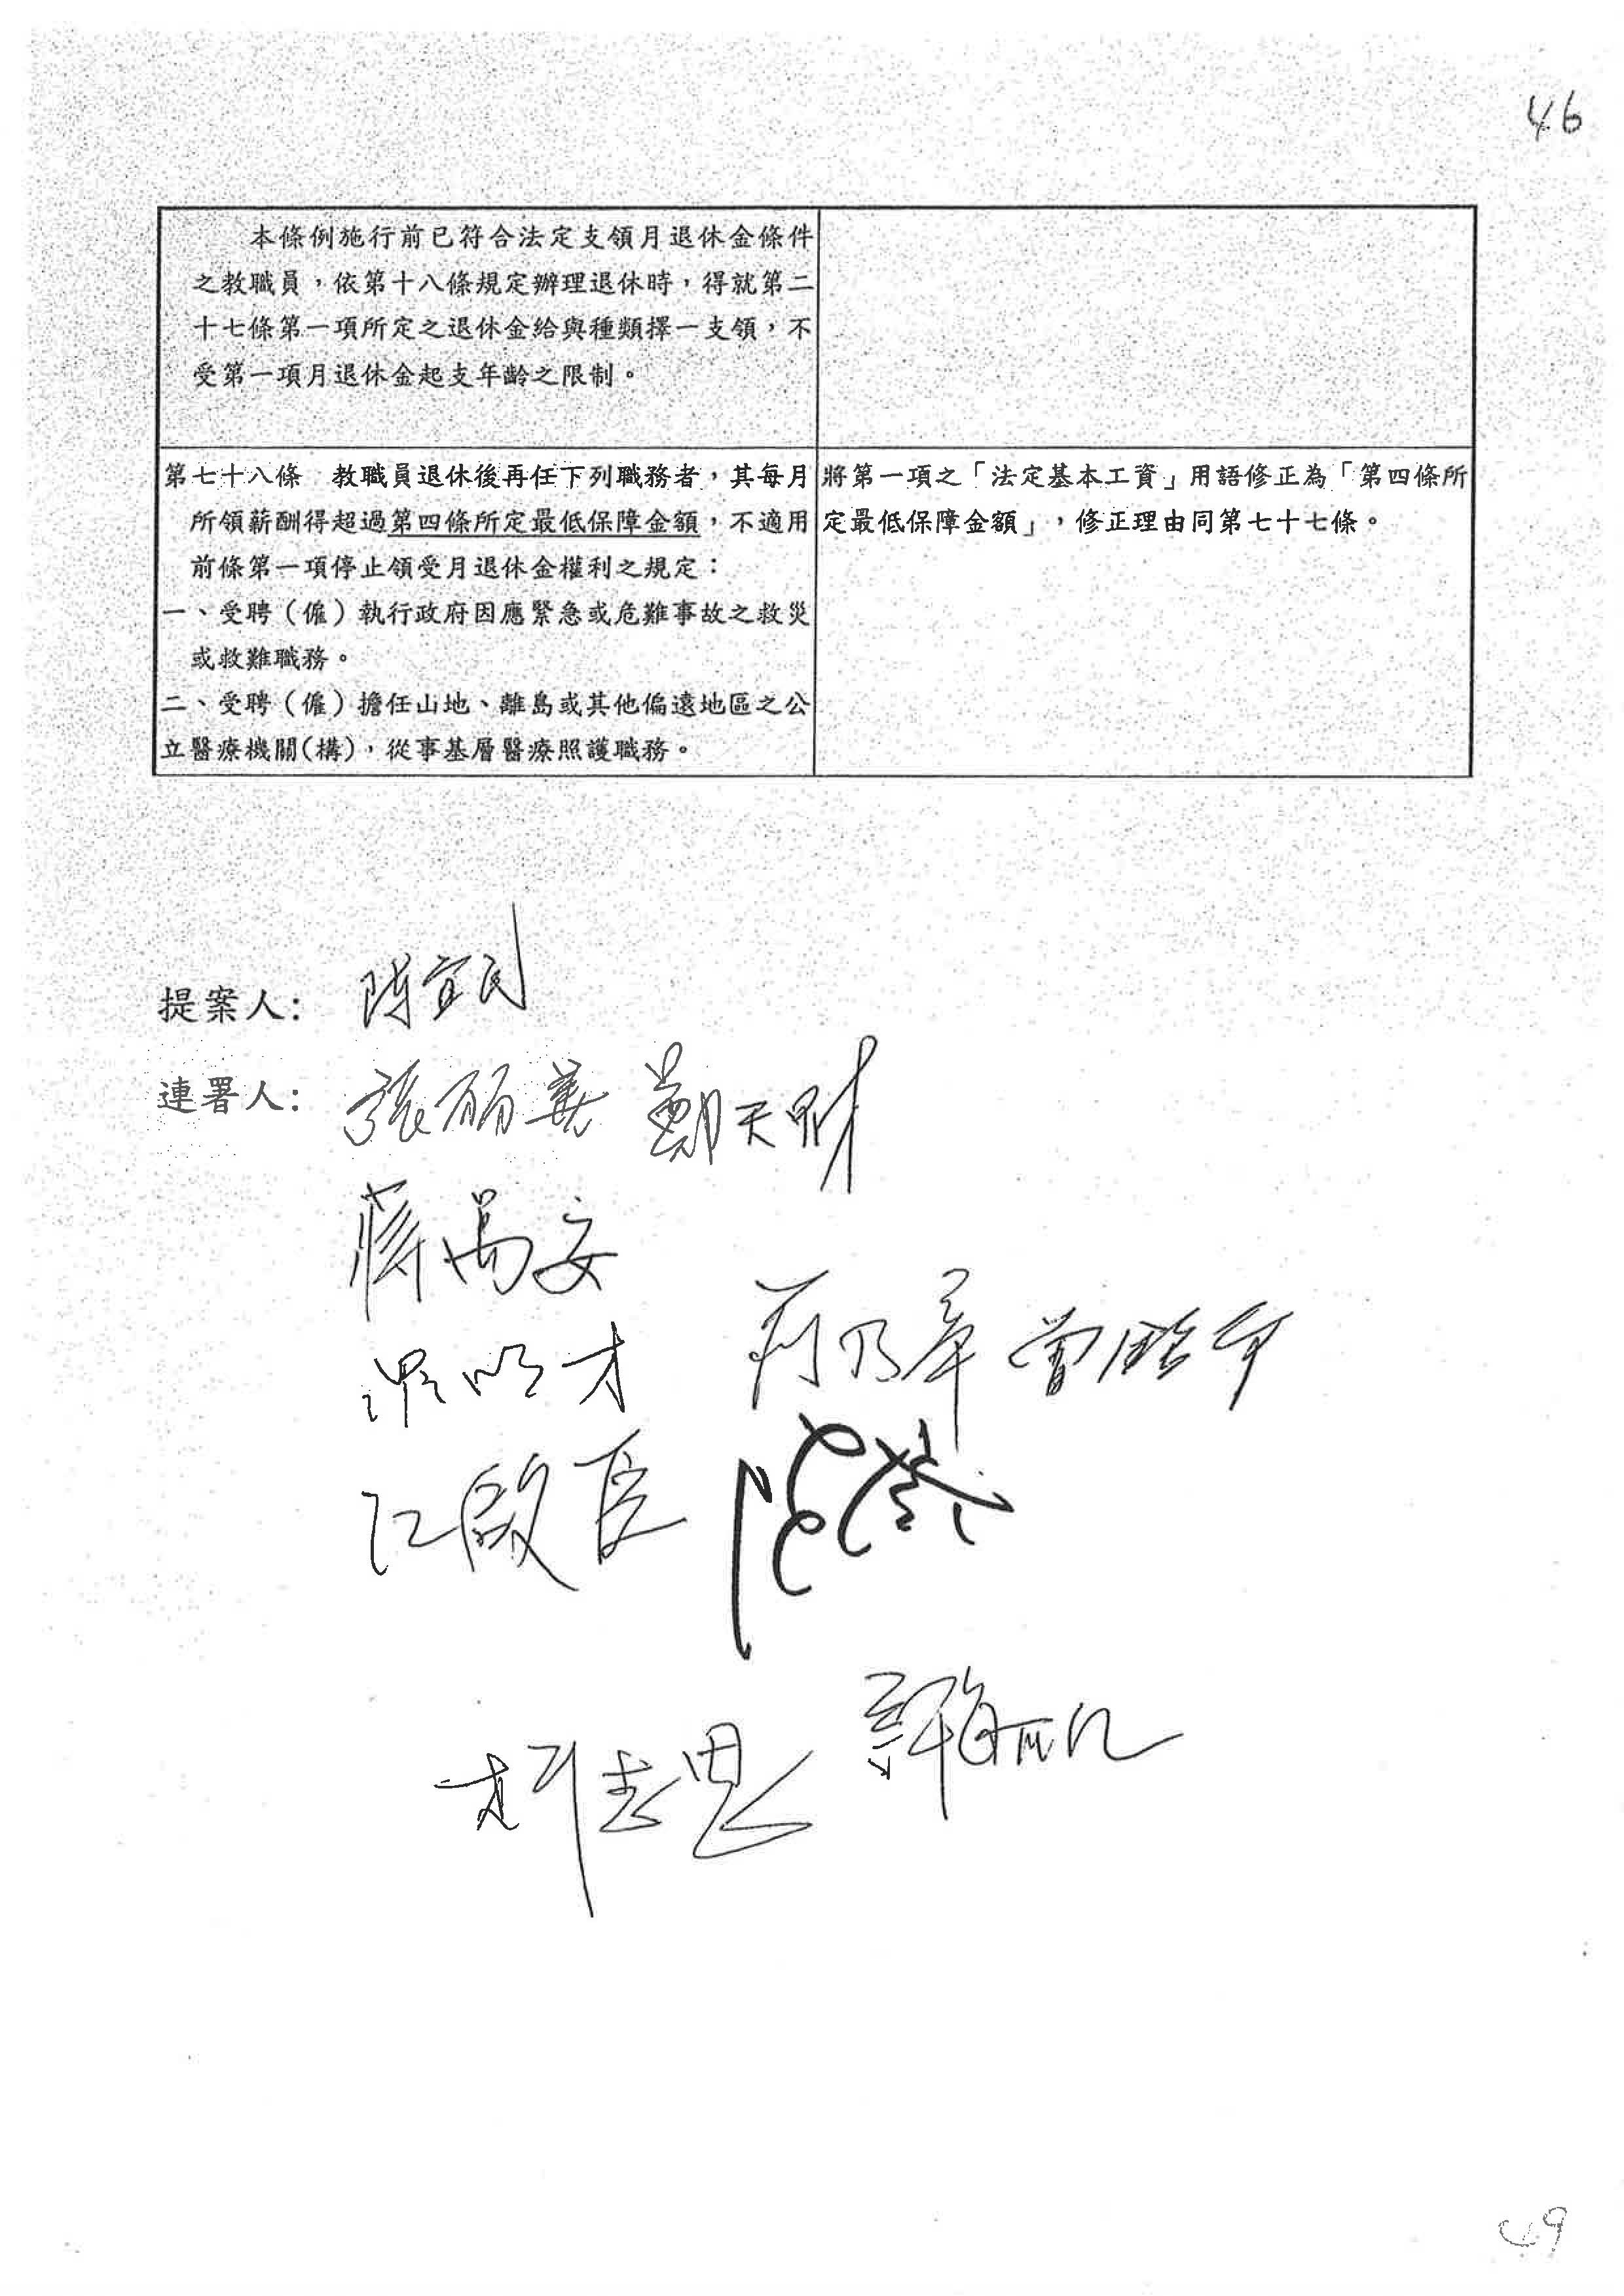 46
本條例施行前已符合法定支領月退休金條件
之教職員，依第十八條規定辦理退休時，得就第二
十七條第一項所定之退休金給與種類擇一支領，不
受第一項月退休金起支年齡之限制。
第七十八條　教職員退休後再任下列職務者，其每月
所領薪酬得超過第四條所定最低保障金額，不適用
前條第一項停止領受月退休金權利之規定：
一、受聘（僱）執行政府因應緊急或危難事故之救災
或救難職務。
二、受聘（僱）擔任山地、離島或其他偏遠地區之公
立醫療機關(構)，從事基層醫療照護職務。
將第一項之「法定基本工資」用語修正為「第四條所
定最低保障金額」，修正理由同第七十七條。
提案人： 陳宜民
連署人： 張麗善 鄭天財
蔣萬安
羅明才 蔣乃辛 曾銘宗
江啟臣
柯志恩 許毓仁